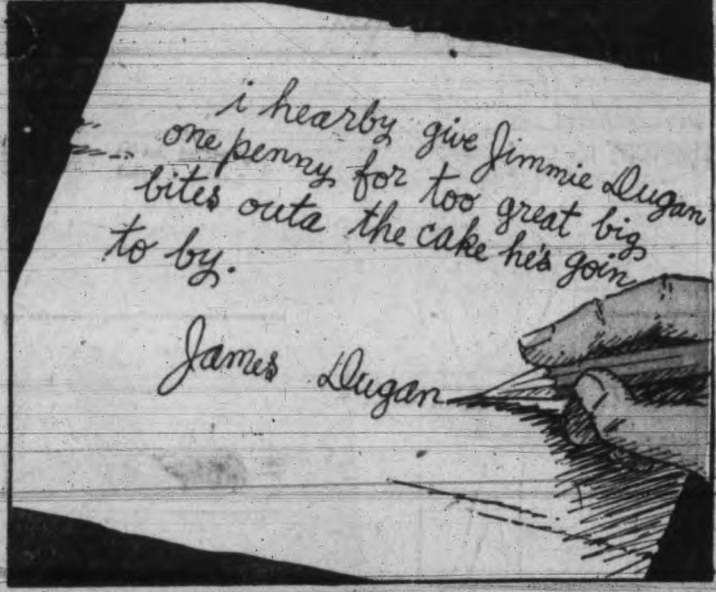 i hearby give Jimmie Dugan
one penny for too great big
bites outa the cake he's goin
to by.
James Dugan